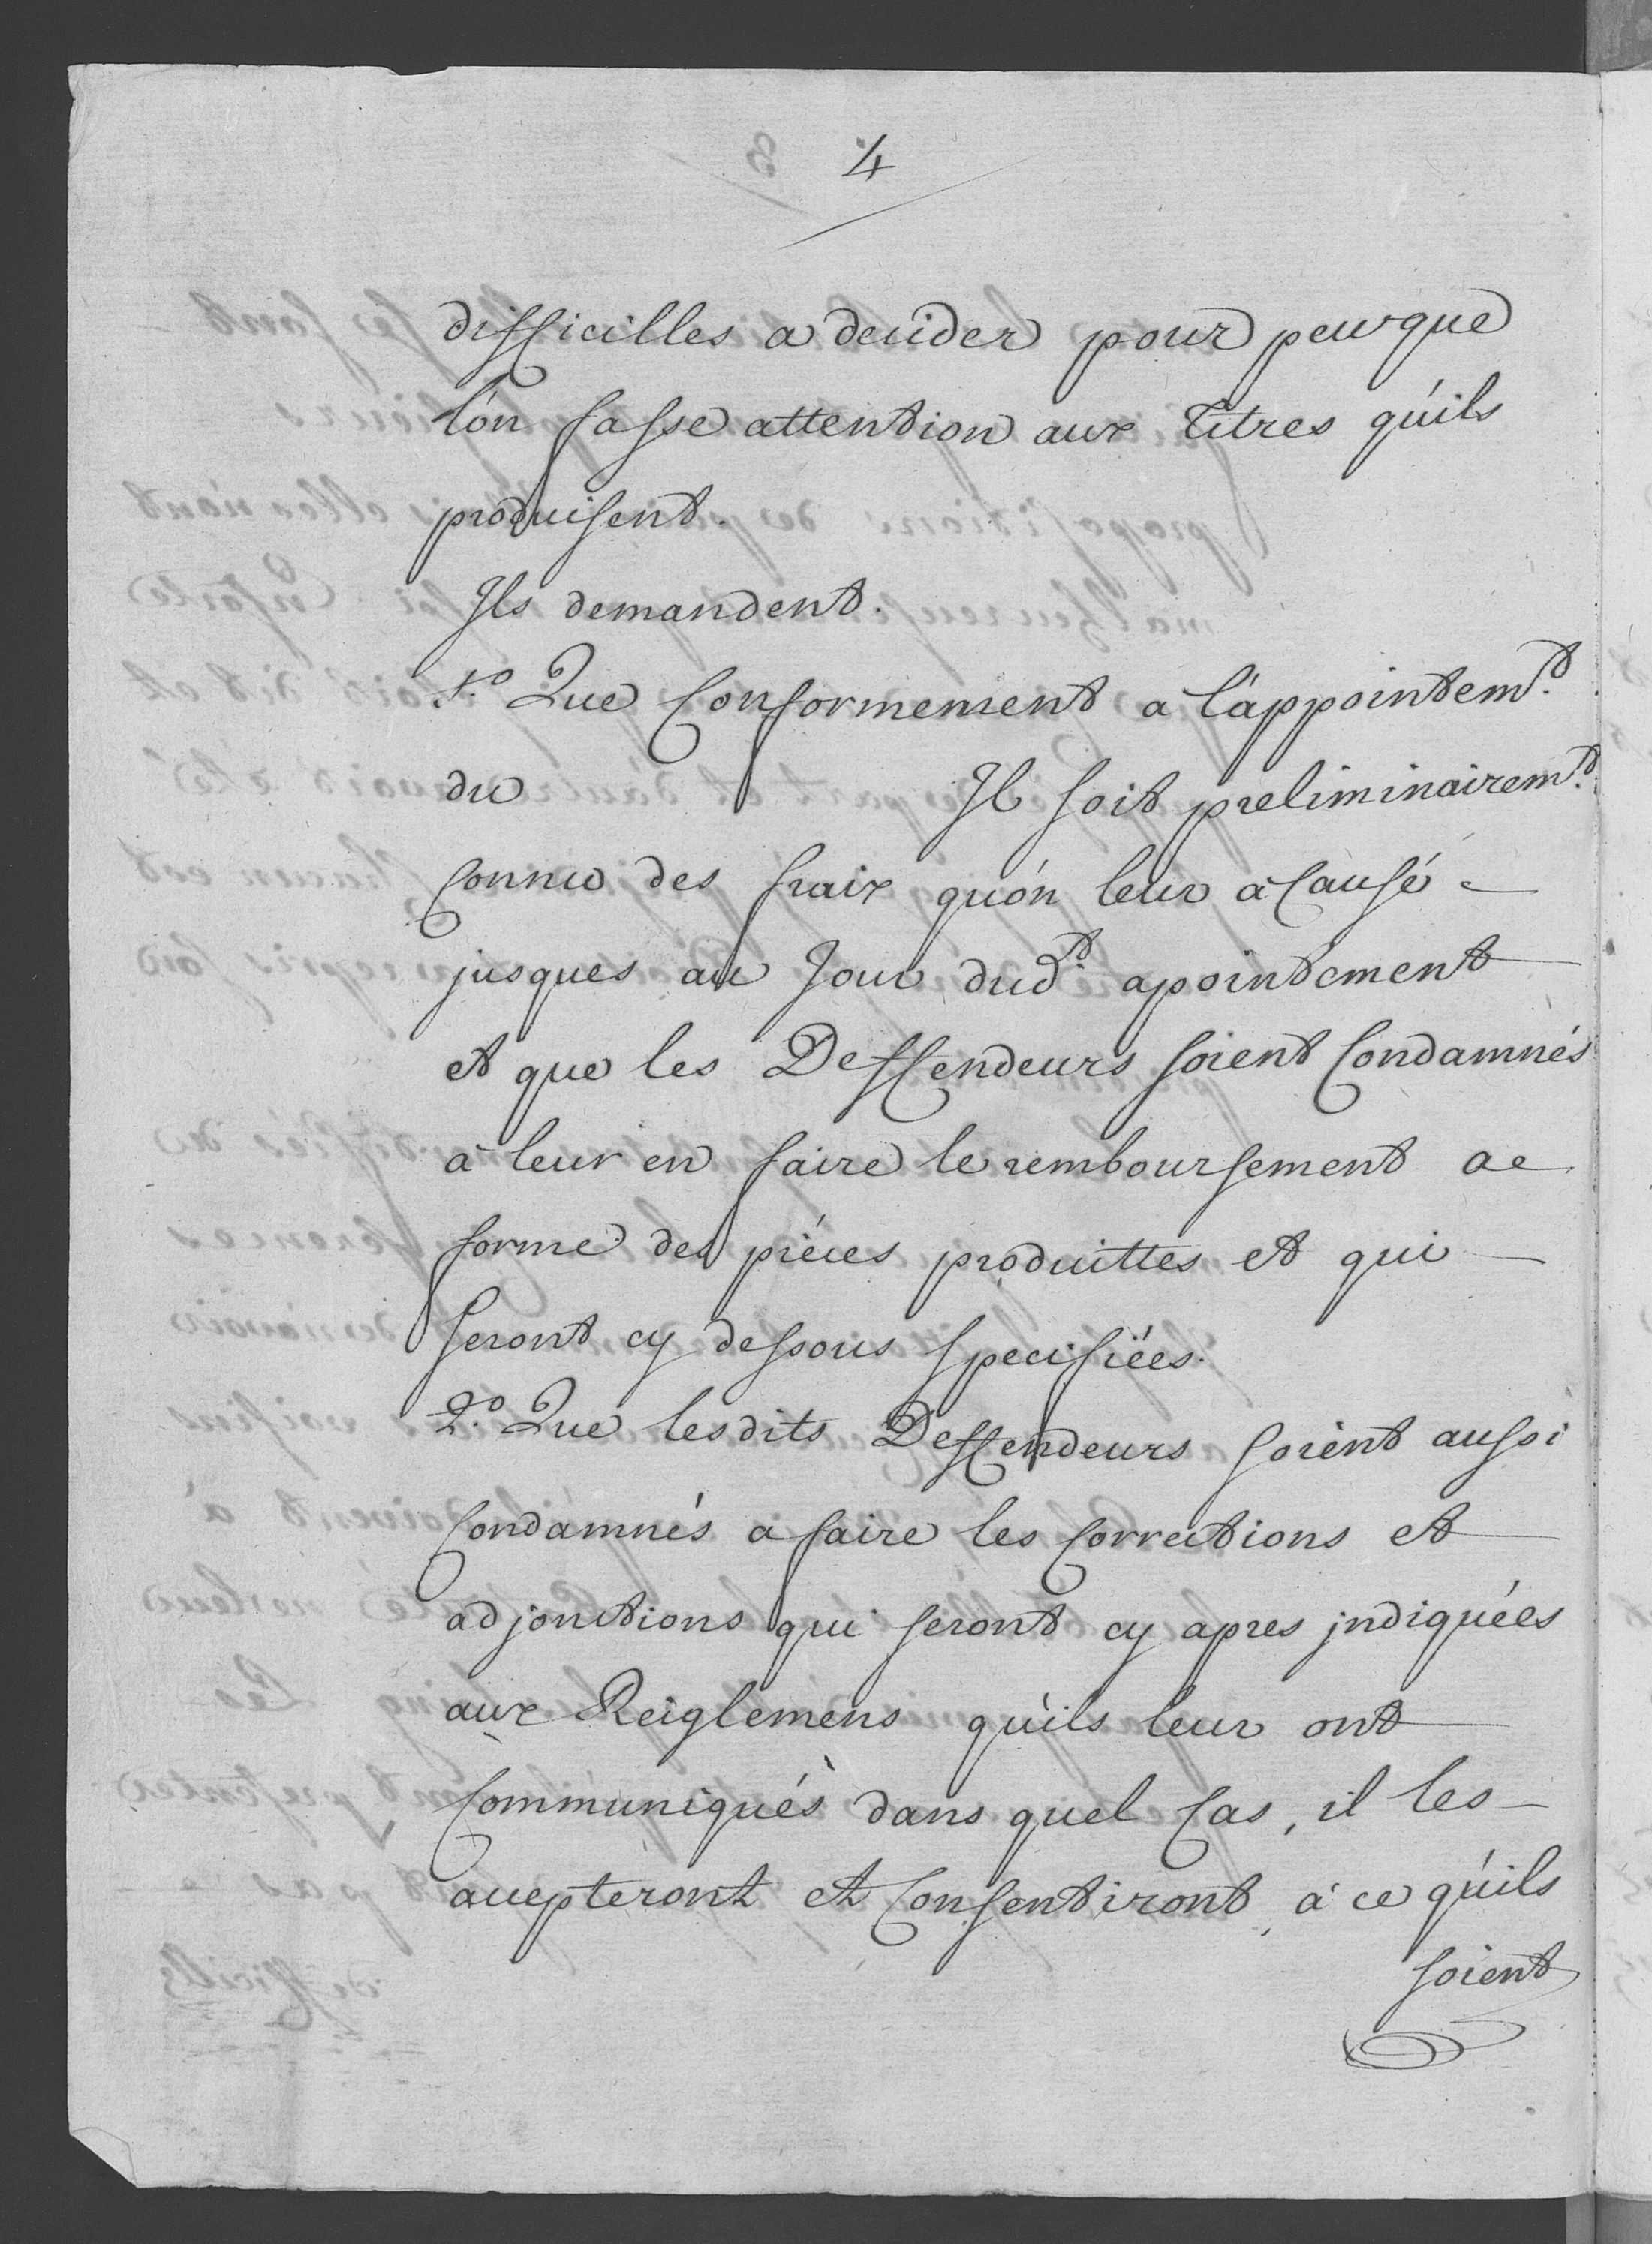 4
difficilles a decider pour peu que
l'on fasse attention aux Titres qu'ils
produisent.
Ils demandent.
1.o Que Conformement a l'appointem.t
du Il soit preliminairem.t
Connu des fraix qu'on leur a Causé
jusques au Jour dud.t apointement
et que les Deffendeurs soient Condamnés
à leur en faire le remboursement a
forme des piéces produittes et qui
seront cy dessous specifiées.
2.o Que lesdits Deffendeurs soient aussi
Condamnés a faire les Corrections et
adjonctions qui seront cy apres jndiquées
aux Reiglemens qu'ils leur ont
Communiqués dans quel Cas, il les
accepteront et Consentiront à ce qu'ils
soient